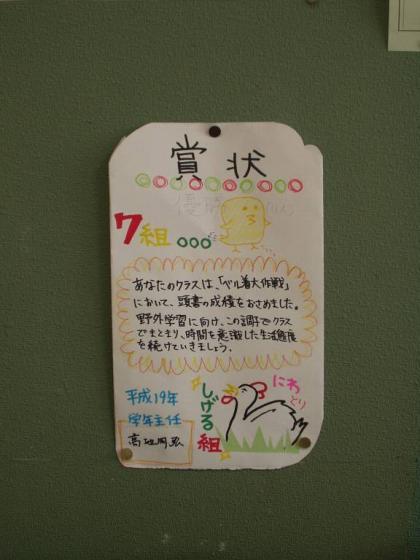 賞状
7組
あなたのクラスは、「ベル着大作戦」
において、頭書の成績をおさめました。
野外学習に向け、この調子でクラス
でまとまり、時間を意識した生活態度
を続けていきましょう。
平成19年
学年主任
にわとり
しげる
組